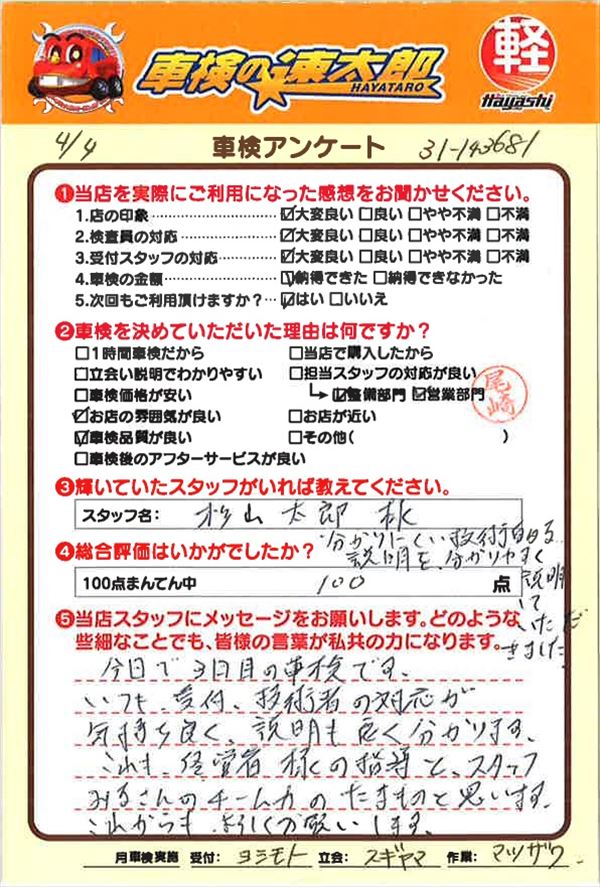 車検の速太郎
HAYATARO
軽
Hayashi
4/4
車検アンケート
31-143681
❶当店を実際にご利用になった感想をお聞かせください。
1.店の印象 ☑大変良い □良い □やや不満 □不満
2.検査員の対応 ☑大変良い □良い □やや不満 □不満
3.受付スタッフの対応 ☑大変良い □良い □やや不満 □不満
4.車検の金額 ☑納得できた □納得できなかった
5.次回もご利用頂けますか? ☑はい □いいえ
❷車検を決めていただいた理由は何ですか?
□1時間車検だから □当店で購入したから
□立会い説明でわかりやすい □担当スタッフの対応が良い
□車検価格が安い ☑整備部門 ☑営業部門
尾崎
☑お店の雰囲気が良い □お店が近い
☑車検品質が良い □その他( )
□車検後のアフターサービスが良い
❸輝いていたスタッフがいれば教えてください。
スタッフ名: 杉山太郎 様
分かりにくい技術
説明を、分かりやすく
説明
して
いただ
きました
❹総合評価はいかがでしたか?
100点まんてん中 100 点
❺当店スタッフにメッセージをお願いします。どのような
些細なことでも、皆様の言葉が私共の力になります。
今日で3回目の車検です。
いつも、受付、技術者の対応が
気持ち良く、説明も良く分かります。
これも、経営者様の指導と、スタッフ
みなさんのチーム力のたまものと思います。
これからもよろしくお願いします。
月車検実施 受付: ヨシモト 立会: スギヤマ 作業: マツザワ